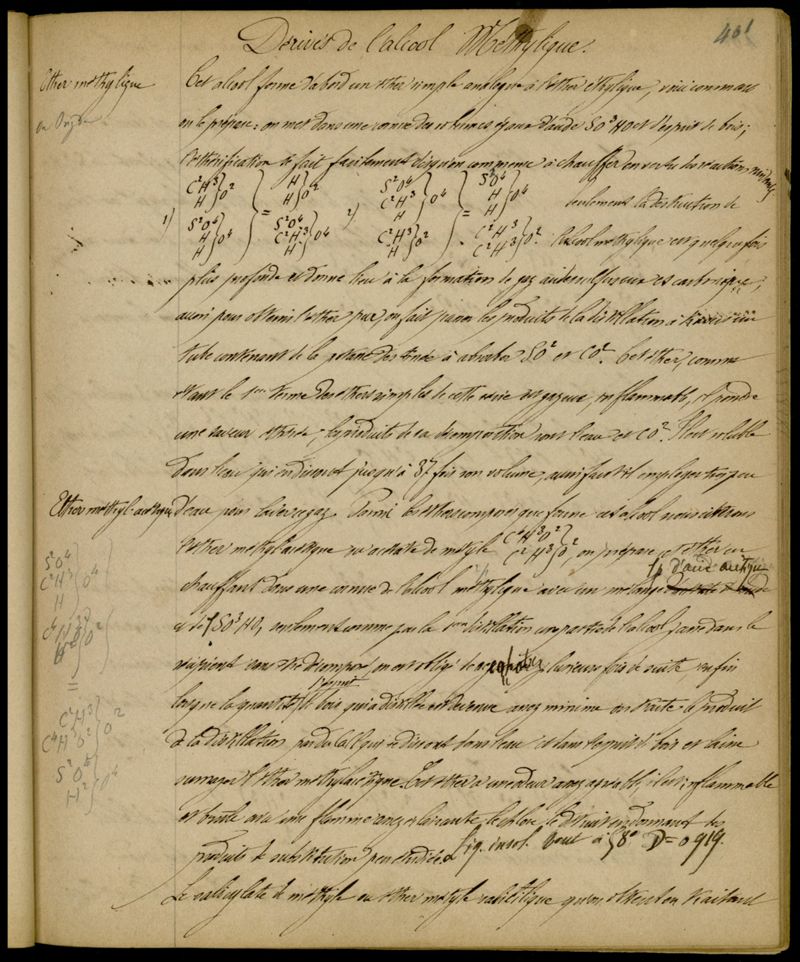 401
Dérivés de l'alcool Méthylique.
Ether méthylique
ou Oxyde
Cet alcool forme d'abord un ether simple analogue à l'ether éthylique, voici comment
on le prépare: on met dans une cornue des volumes égaux d'acide SO³HO et d'esprit de bois;
l'ethérification se fait facilement dès qu'on commence à chauffer en vertu des réactions suivantes
1) C²H³ H } O² S²O⁴ H H } O⁴ } = H H } O² S²O⁴ C²H³ H } O⁴ 2) S²O⁴ C²H³ H } O⁴ C²H³ H } O² } = S²O⁴ H H } O⁴ C²H³ C²H³ } O².
seulement la destruction de
l'alcool méthylique est quelquefois
plus profonde et donne lieu à la formation de gaz acides sulfureux et carbonique;
aussi pour obtenir l'ether pur, on fait passer les produits de la distillation à travers un
tube contenant de la potasse destinée à absorber SO² et CO². Cet ether, comme
étant le 1er terme des ethers simples de cette série est gazeux, inflammable, répandant
une saveur éthérée, les produits de sa décomposition sont l'eau et CO². Il est soluble
dans l'eau qui en dissout jusqu'à 37 fois son volume, aussi faut-il employer très peu
Ether méthyl-acétique
d'eau pour laver ce gaz. Parmi les ethers composés que forme cet alcool nous citerons
l'ether méthylacétique ou acétate de méthyle C⁴H³O² C²H³ } O², on prépare cet ether en
chauffant dans une cornue de l'alcool méthylique avec un mélange 1p d'acide acétique
et de 1 SO³HO, seulement comme par la 1ère distillation une partie de l'alcool passe dans le
récipient sans être décomposé on est obligé de cohober plusieurs fois de suite enfin
lorsque la quantité d'esprit de bois qui a distillé est devenue assez minime on traite le produit
de la distillation par du CaCl qui se dissout dans l'eau et dans l'esprit de bois et laisse
surnager l'ether méthylacétique. Cet ether a une odeur assez agréable, il est inflammable
et brûle avec une flamme assez éclairante, le chlore le détruit en donnant des
produits de substitution peu étudiés. Liq. insol. bout à 58° D = 0 919.
Le salicylate de méthyle ou ether méthyle salicylique qu'on obtient en traitant
S²O⁴ C²H³ H } O⁴
C⁴H³O² H } O²
=
C²H³ C⁴H³O² } O²
S²O⁴ H² } O⁴